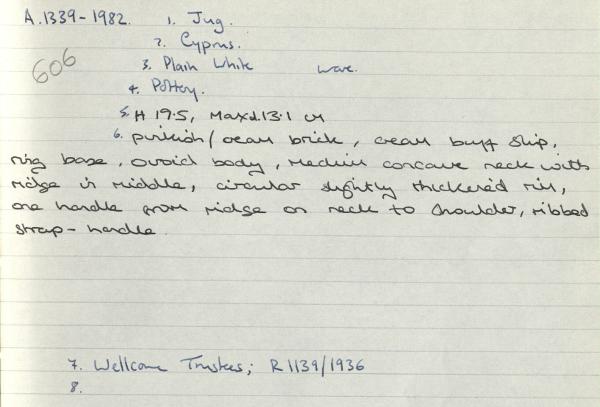 A.1339-1982. 1. Jug.
2. Cyprus.
606
3. Plain White Ware.
4. Pottery.
5. H 19.5, Maxd. 13.1 cm
6. pinkish/cream brick, cream buff slip,
ring base, ovoid body, medium concave neck with
ridge in middle, circular slightly thickened rim,
one handle from ridge on neck to shoulder, ribbed
strap-handle.
7. Wellcome Trustees; R1139/1936
8.